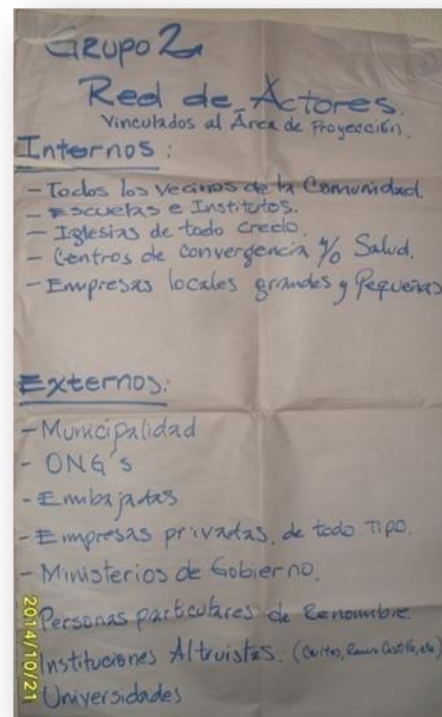 GRUPO 2
Red de Actores.
Vinculados al Área de Proyección.
Internos:
- Todos los vecinos de la Comunidad.
- Escuelas e Institutos.
- Iglesias de todo credo.
- Centros de convergencia y/o Salud.
- Empresas locales grandes y Pequeñas
Externos:
- Municipalidad
- ONG's
- Embajadas
- Empresas privadas, de todo Tipo.
- Ministerios de Gobierno.
Personas particulares de Renombre.
Instituciones Altruistas. (Caritas, Ramiro Castillo, etc)
Universidades
2014/10/21